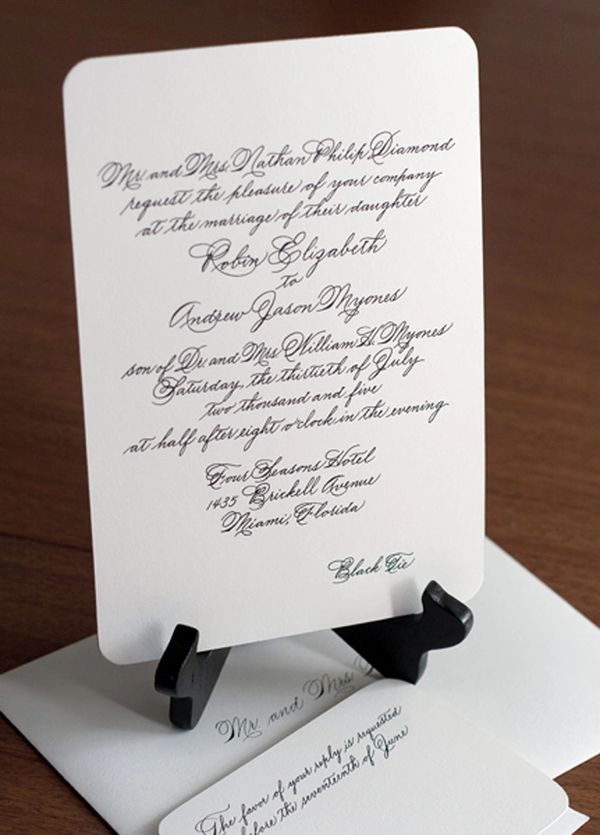 Mr. and Mrs. Nathan Philip Diamond
request the pleasure of your company
at the marriage of their daughter
Robin Elizabeth
to
Andrew Jason Myones
son of Dr. and Mrs. William H. Myones
Saturday, the thirtieth of July
two thousand and five
at half after eight o'clock in the evening
Four Seasons Hotel
1435 Brickell Avenue
Miami, Florida
Black Tie
Mr. and Mrs.
The favor of your reply is requested
before the seventeenth of June